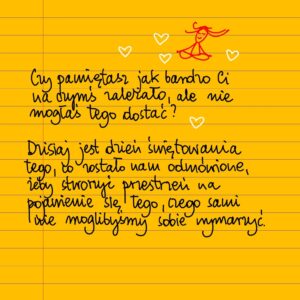 Czy pamiętasz jak bardzo Ci
na czymś zależało, ale nie
mogłaś tego dostać?
Dzisiaj jest dzień świętowania
tego, co zostało nam odmówione,
żeby stworzyć przestrzeń na
pojawienie się, tego, czego sami
nie moglibyśmy sobie wymarzyć.